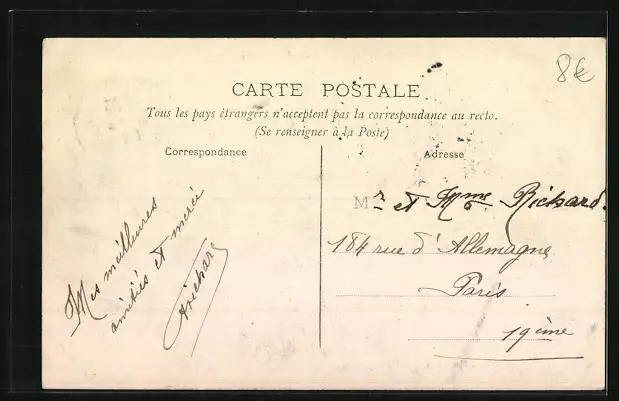 8€
CARTE POSTALE
Tous les pays étrangers n'acceptent pas la correspondance au recto.
(Se renseigner à la Poste)
Correspondance
Mes meilleures
amitiés et merci
Adresse
Mr et Mme Richard.
184 rue d'Allemagne
Paris
19ème